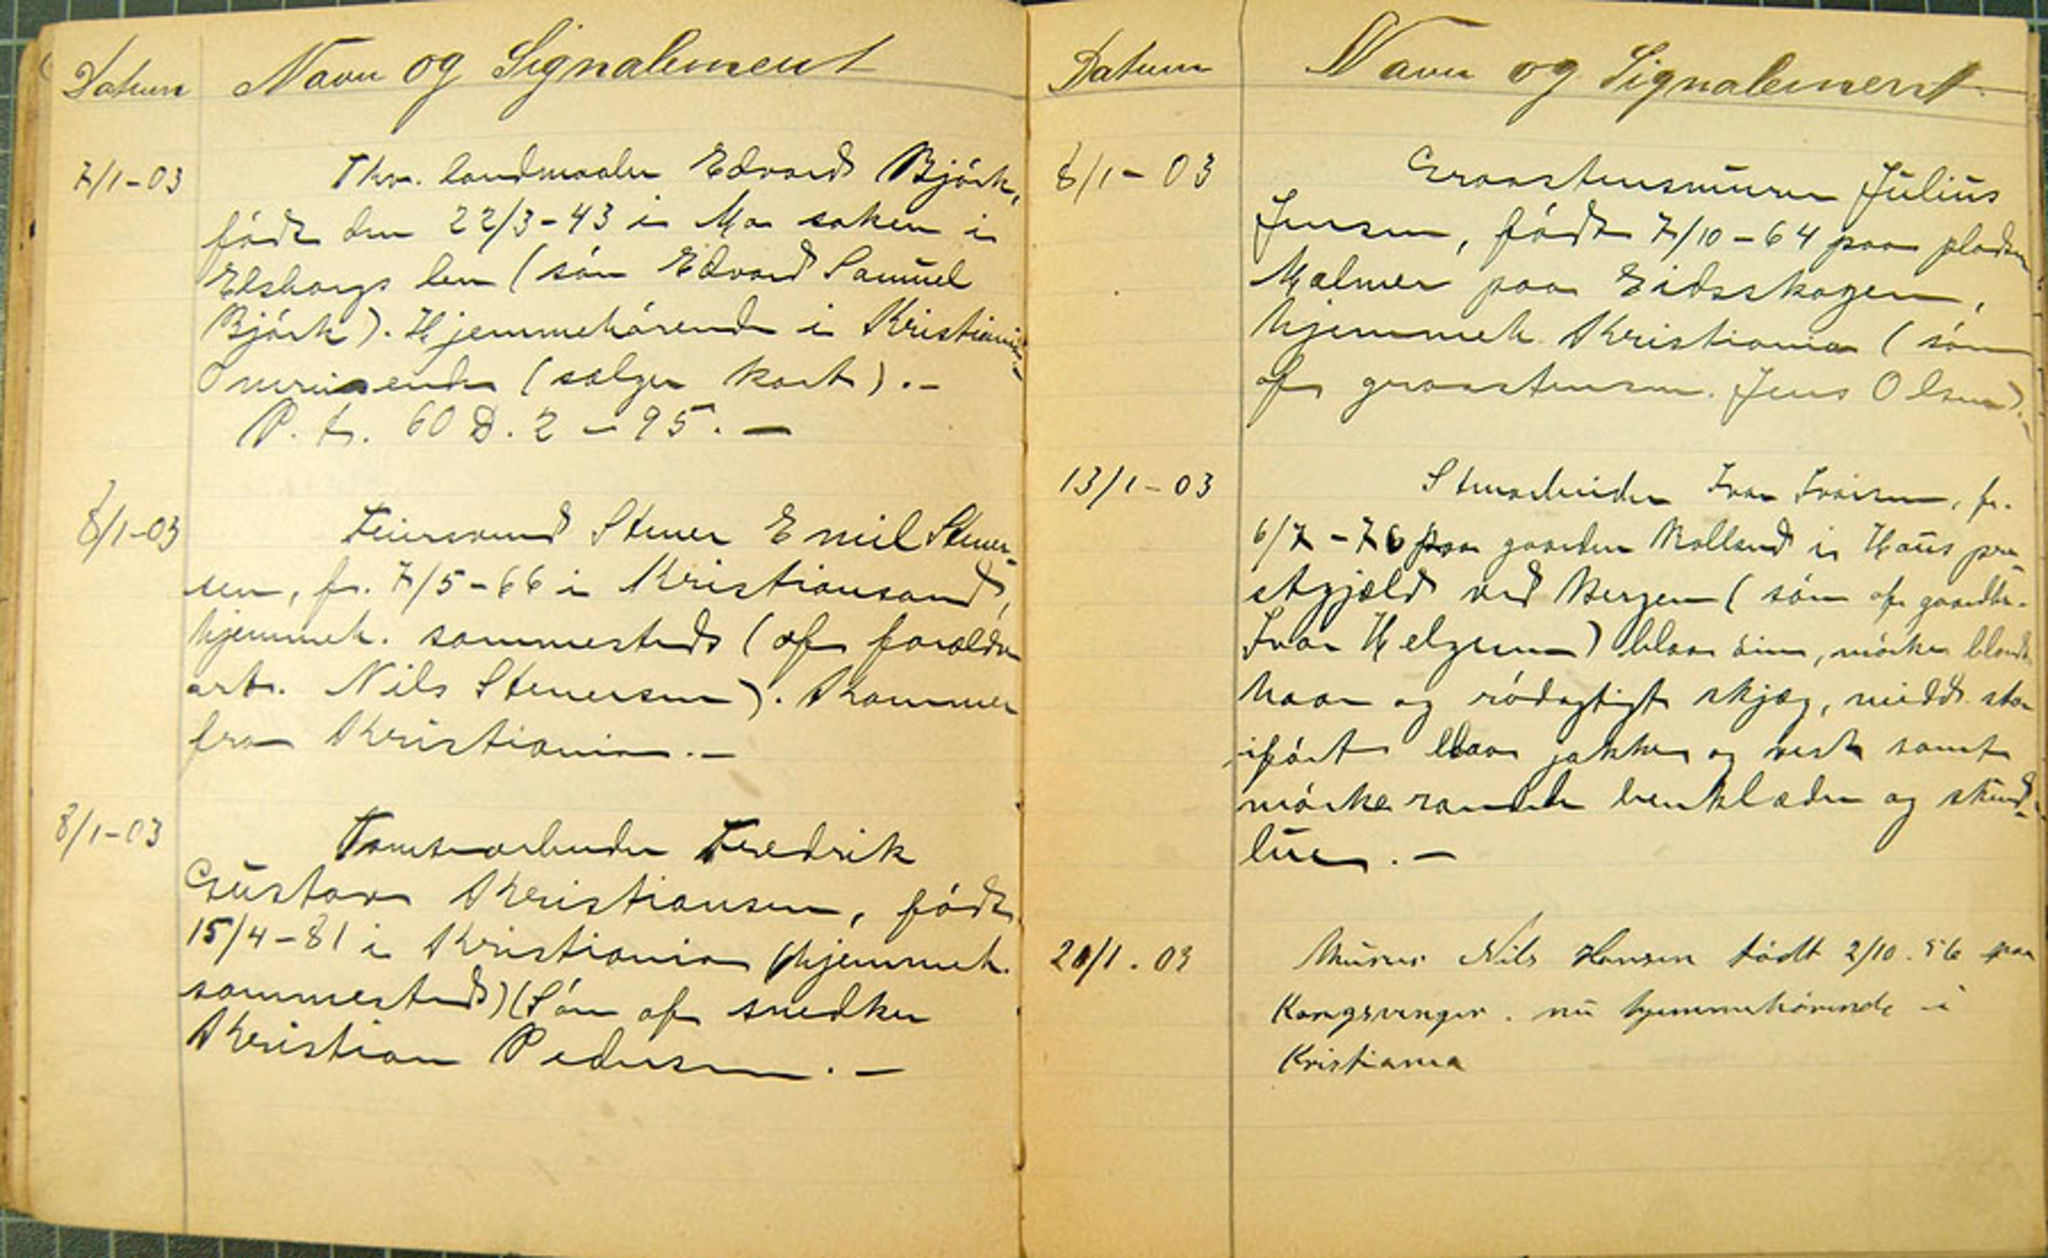 Datum Navn og Signalement
7/1-03 Fhv. landmaaler Edvard Björk,
födt den 22/3-43 i Mo soken i
Elsborgs len (sön Edvard Samuel
Björk). Hjemmehörende i Kristiania
Omreisende (sælger kart).-
P. t. 60 D. 2 - 95.-
8/1-03 Feiersvend Stener Emil Stener-
sen, f. 7/5-66 i Kristiansand,
hjemmeh. sammesteds (af forældre
arb. Nils Stenersen). Kommer
fra Kristiania.-
8/1-03 Tomtearbeider Fredrik
Gustav Kristiansen, födt
15/4-81 i Kristiania (hjemmeh.
sammesteds) (Sön af snedker
Kristian Pedersen.-
Datum Navn og Signalement
8/1-03 Graastensmurer Julius
Jensen, födt 7/10-64 paa pladsen
Malmer paa Eidsskogen,
hjemmeh. Kristiania (sön
af graastensm. Jens Olsen).
13/1-03 Stenarbeider Ivar Ivarsen, f.
6/7-76 paa gaarden Molland i Haus pre-
stgjæld ved Bergen (sön af gaardbr.
Ivar Helgesen) blaa öine, mörke blonde
haar og rödagtigt skjæg, midd. stor
ifört blaa jakke og vest samt
mörkerandede benklæder og skind-
lue.-
20/1.03 Murer Nils Hansen födt 2/10.56 paa
Kongsvinger. nu hjemmehörende i
Kristiania